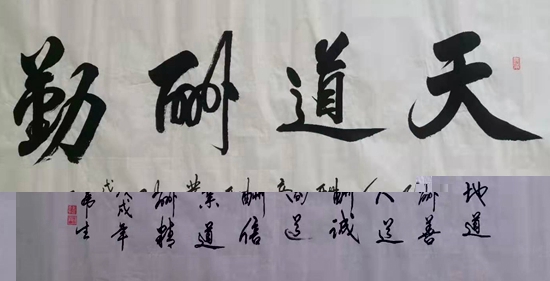 天道酬勤
地道
酬善
人道
酬诚
商道
酬信
業道
酬精
戊戌年